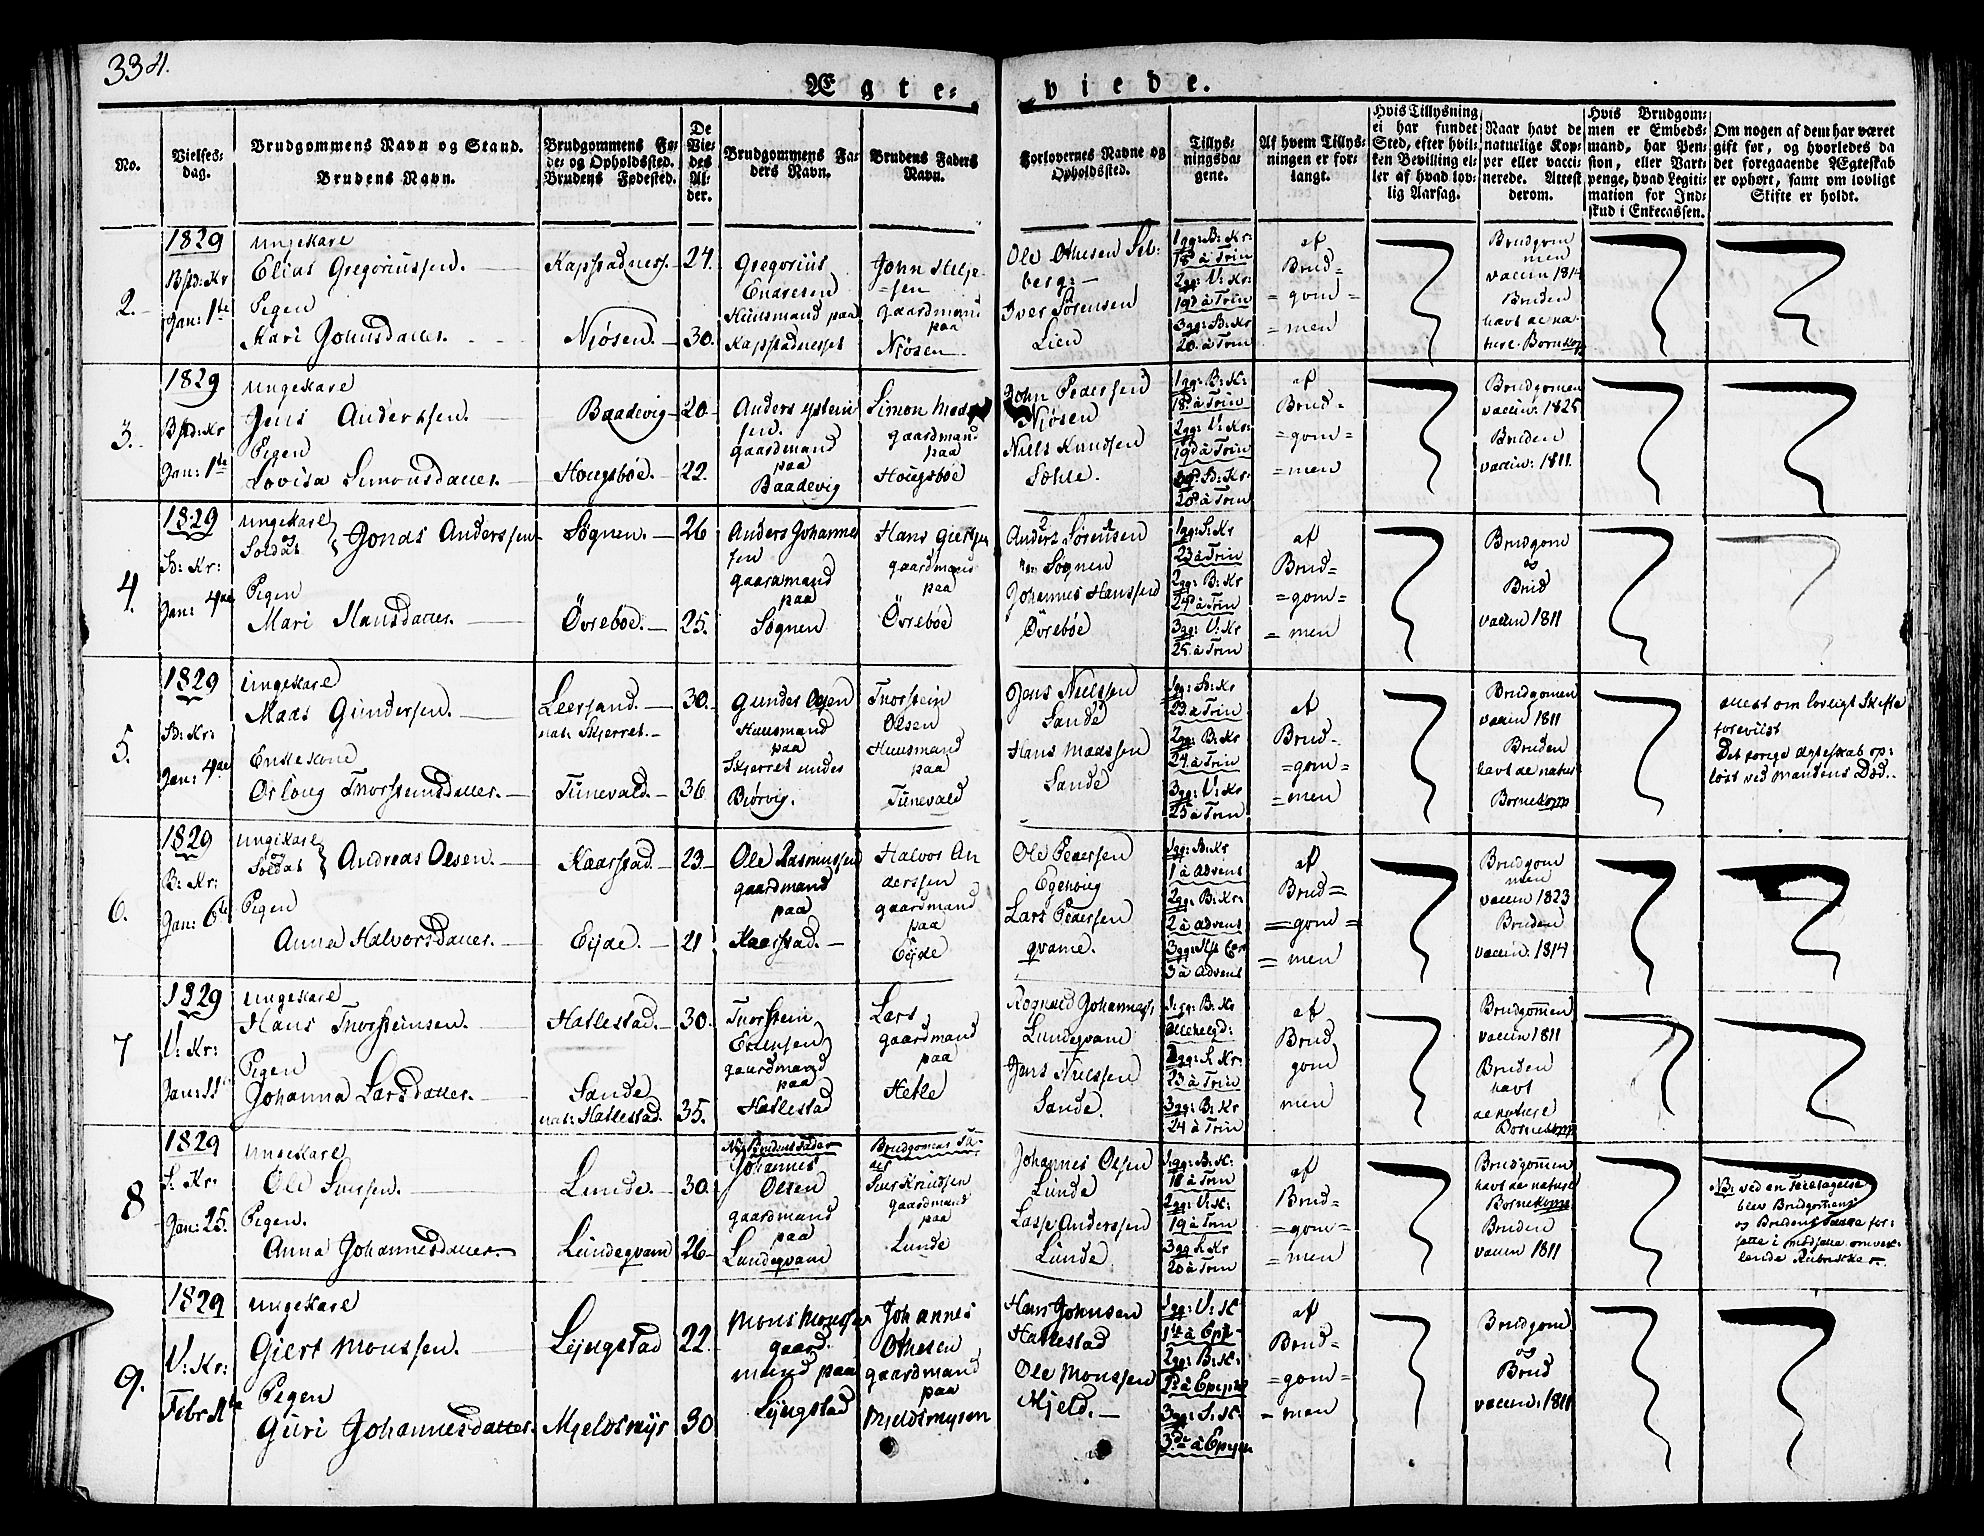 334.
Ægte-
viede.
No.
Vielses-
dag.
Brudgommens Navn og Stand.
Brudens Navn.
Brudgommens Fø-
de- og Opholdssted.
Brudens Fødested.
De
Vie-
des
Al-
der.
Brudgommens Fa-
ders Navn.
Brudens Faders
Navn.
Forlovernes Navne og
Opholdssted.
Tillys-
ningsda-
gene.
Af hvem Tillys-
ningen er for-
langt.
Hvis Tillysning
ei har fundet
Sted, efter hvil-
ken Bevilling el-
ler af hvad lov-
lig Aarsag.
Naar havt de
naturlige Kop-
per eller vacci-
nerede. Attest
derom.
Hvis Brudgom-
men er Embeds-
mand, har Pen-
sion, eller Vart-
penge, hvad Legiti-
mation for Ind-
skud i Enkecassen.
Om nogen af dem har været
gift før, og hvorledes da
det foregaaende Ægteskab
er ophørt, samt om lovligt
Skifte er holdt.
2.
1829
Jan: 1te
Ungekare
Elias Gregoriussen.
Pigen
Kari Johnsdatter.
Kapstadness.
Njøsen.
24.
30.
Gregorius
Endresen
Huusmand paa
Kapstadnesset
John
gaardmand
paa
Njøsen
Ole Othesen Sol-
berg:
Iver Sørensen
Lien
1gg: B: Kr:
18 à Trin
2gg: V: Kr:
19 à Trin
3gg: B: Kr
20 à Trin
af
Brud=
=gom=
=men
Brudgom
men
vaccin 1814
Bruden
havt de na-
turl. Bornekop
3.
1829
Jan: 1te
Ungekare
Jens Anderssen.
Pigen
Lovisa Simonsdatter.
Baadevig
Hougsbøe.
20
22.
Anders
sen.
gaardmand
paa
Baadevig
Simon
gaardmand
paa
Hougsbøe
John Pedersen
Njøsen
Niels Knudsen
1gg: B: K:
18 à Trin
2gg: V: Kr:
19 à Trin
20 à Trin
af
Brud=
=gom=
=men
Brudgomen
vaccin: 1825
Bruden
vaccin: 1811.
4.
1829
B: Kr:
Jan: 4de
Ungekare
og
Soldat
Jonas Anderssen
Pigen
Mari Hansdatter.
Søgnen.
Övrebøe.
26
25.
Anders Johannes
sen
gaardmand
paa
Søgnen
Hans
gaardmand
paa
Övrebøe
Anders Sørensen
Søgnen
Johannes Hanssen
Övrebøe
1gg: S: Kr
23 à Trin
2gg: B: Kr
24 à Trin
3gg: V: Kr
25 à Trin
af
Brud=
=gom=
=men
Brudgom
og
Brud
vaccin 1811
5.
1829
B: Kr:
Jan: 4de
Ungekare
Mads Gundersen.
Enkekone
Thorsteinsdatter.
Leersand.
nat: Skjerret.
Tunevald.
30.
36
Gunder Olsen
Huusmand
paa
Skjerret under
Biørvig.
Thorstein
Olsen
Huusmand
paa
Tunevald
Jens Nielssen
Sande
Hans Madssen
Sande
1gg: B: Kr
23 à Trin
2gg: B: Kr
24 à Trin
3gg: V: Kr
25 à Trin
af
Brud-
=gom=
=men
Brudgomen
vaccin 1811
Bruden
havt de natur
Bornekopp
attest om lovligt Skifte
foreviist
Det forige ægteskab op-
løst ved mandens Død.
6.
1829
B: Kr:
Jan: 6te
Ungekare
og
Soldat
Andreas Olsen.
Pigen
Anna Halvorsdatter.
Kaarstad.
Eijde.
23
21
Ole Rasmussen
gaardmand
paa
Kaarstad.
Halvor An
derssen
gaardmand
paa
Eijde
Ole Pedersen
Lars Pedersen
qvame.
1gg: B: Kr
1 à Advent
2gg: B: Kr:
2 à Advent
3 à Advent
af
Brud=
=gom=
=men
Brudgom
men
vaccin 1823
Bruden
vaccin: 1814
7
1829
V: Kr:
Jan: 11
Ungekare
Hans Thorsteinsen.
Pigen
Johanna Larsdatter.
Hatlestad.
Sande
nat: Hatlestad.
30.
35.
Thorstein
gaardmand
paa
Hatlestad
Lars
gaardmand
paa
Hetle
Rognald Johannes,
Lundeqvam
Jens Nielssen
Sande.
1gg: B: Kr
Allehelgd:
2gg: S. Kr:
23 à Trin
3gg: B: Kr
24 à Trin
af
Brud
gom
men
Brudgomen
vaccin 1811
Bruden
havt
de naturl
Bornekopp
8
1829
S. Kr:
Jan: 25.
Ungekare
Ole
Pigen.
Anna Johannesdatter
Lunde.
Lundeqvam
30
26
Johannes
Olsen
gaardmand
paa
Lundeqvam
Brudgomens Fa-
der
gaardmand
paa
Lunde
Johannes Olsen
Lunde
Lasse Anderssen
Lunde
1gg: B: K:
18 à Trin
2gg: V: K:
19 à Trin
3gg
20 à Trin
af
Brud=
=gom=
=men
Brudgomen
havt de naturl
Bornekopp
Bruden
vaccin 1811
NB: ved en Feiltagelse
blev Brudgomens
og Brudens Fædre for-
satte i modsatte omvex-
lende Rubrikker
9.
1829
V: Kr:
Febr: 1te
Ungekare
Giert Monssen.
Pigen
Guri Johannesdatter.
Lyngstad
Mjeldsmyr
22.
30
Mons Monssen
gaard-
mand paa
Lyngstad
Johannes
Othesen
gaardmand
paa
Mjeldsmyren
Hans Johnsen
Hatlestad
Ole Monssen
Mjeld.
1gg: V: K:
2gg: B: K:
3gg: S. K:
af
Brud=
=gom=
=men
Brudgom
og
Brud
vaccin: 1811